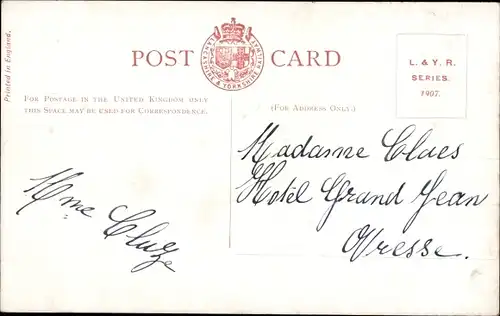 Printed in England.
POST CARD
LANCASHIRE & YORKSHIRE RAILWAY
L. & Y. R.
SERIES.
1907.
FOR POSTAGE IN THE UNITED KINGDOM ONLY
THIS SPACE MAY BE USED FOR CORRESPONDENCE.
(FOR ADDRESS ONLY.)
Madame Claes
Hotel Grand Jean
Vresse.
Mme